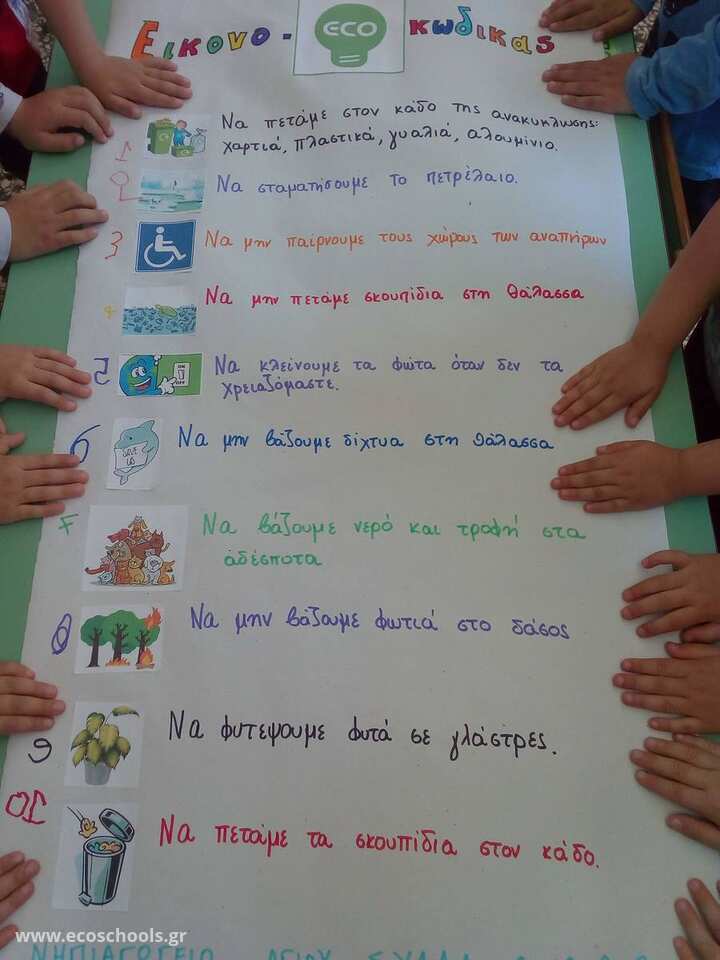 Εικονο - ECO κωδικας
1 Να πετάμε στον κάδο της ανακυκλωσης:
χαρτιά, πλαστικά, γυαλιά, αλουμίνιο.
2 Να σταματήσουμε το πετρέλαιο.
3 Να μην παίρνουμε τους χώρους των αναπήρων
4 Να μην πετάμε σκουπίδια στη θάλασσα
5 Να κλείνουμε τα φώτα όταν δεν τα
χρειαζόμαστε.
6 SAVE US Να μην βάζουμε δίχτυα στη θάλασσα
7 Να βάζουμε νερό και τροφή στα
αδέσποτα
8 Να μην βάζουμε φωτιά στο δάσος
9 Να φυτεψουμε φυτά σε γλάστρες.
10 Να πετάμε τα σκουπίδια στον κάδο.
www.ecoschools.gr
ΝΗΠΙΑΓΩΓΕΙΟ ΑΓΙΟΥ